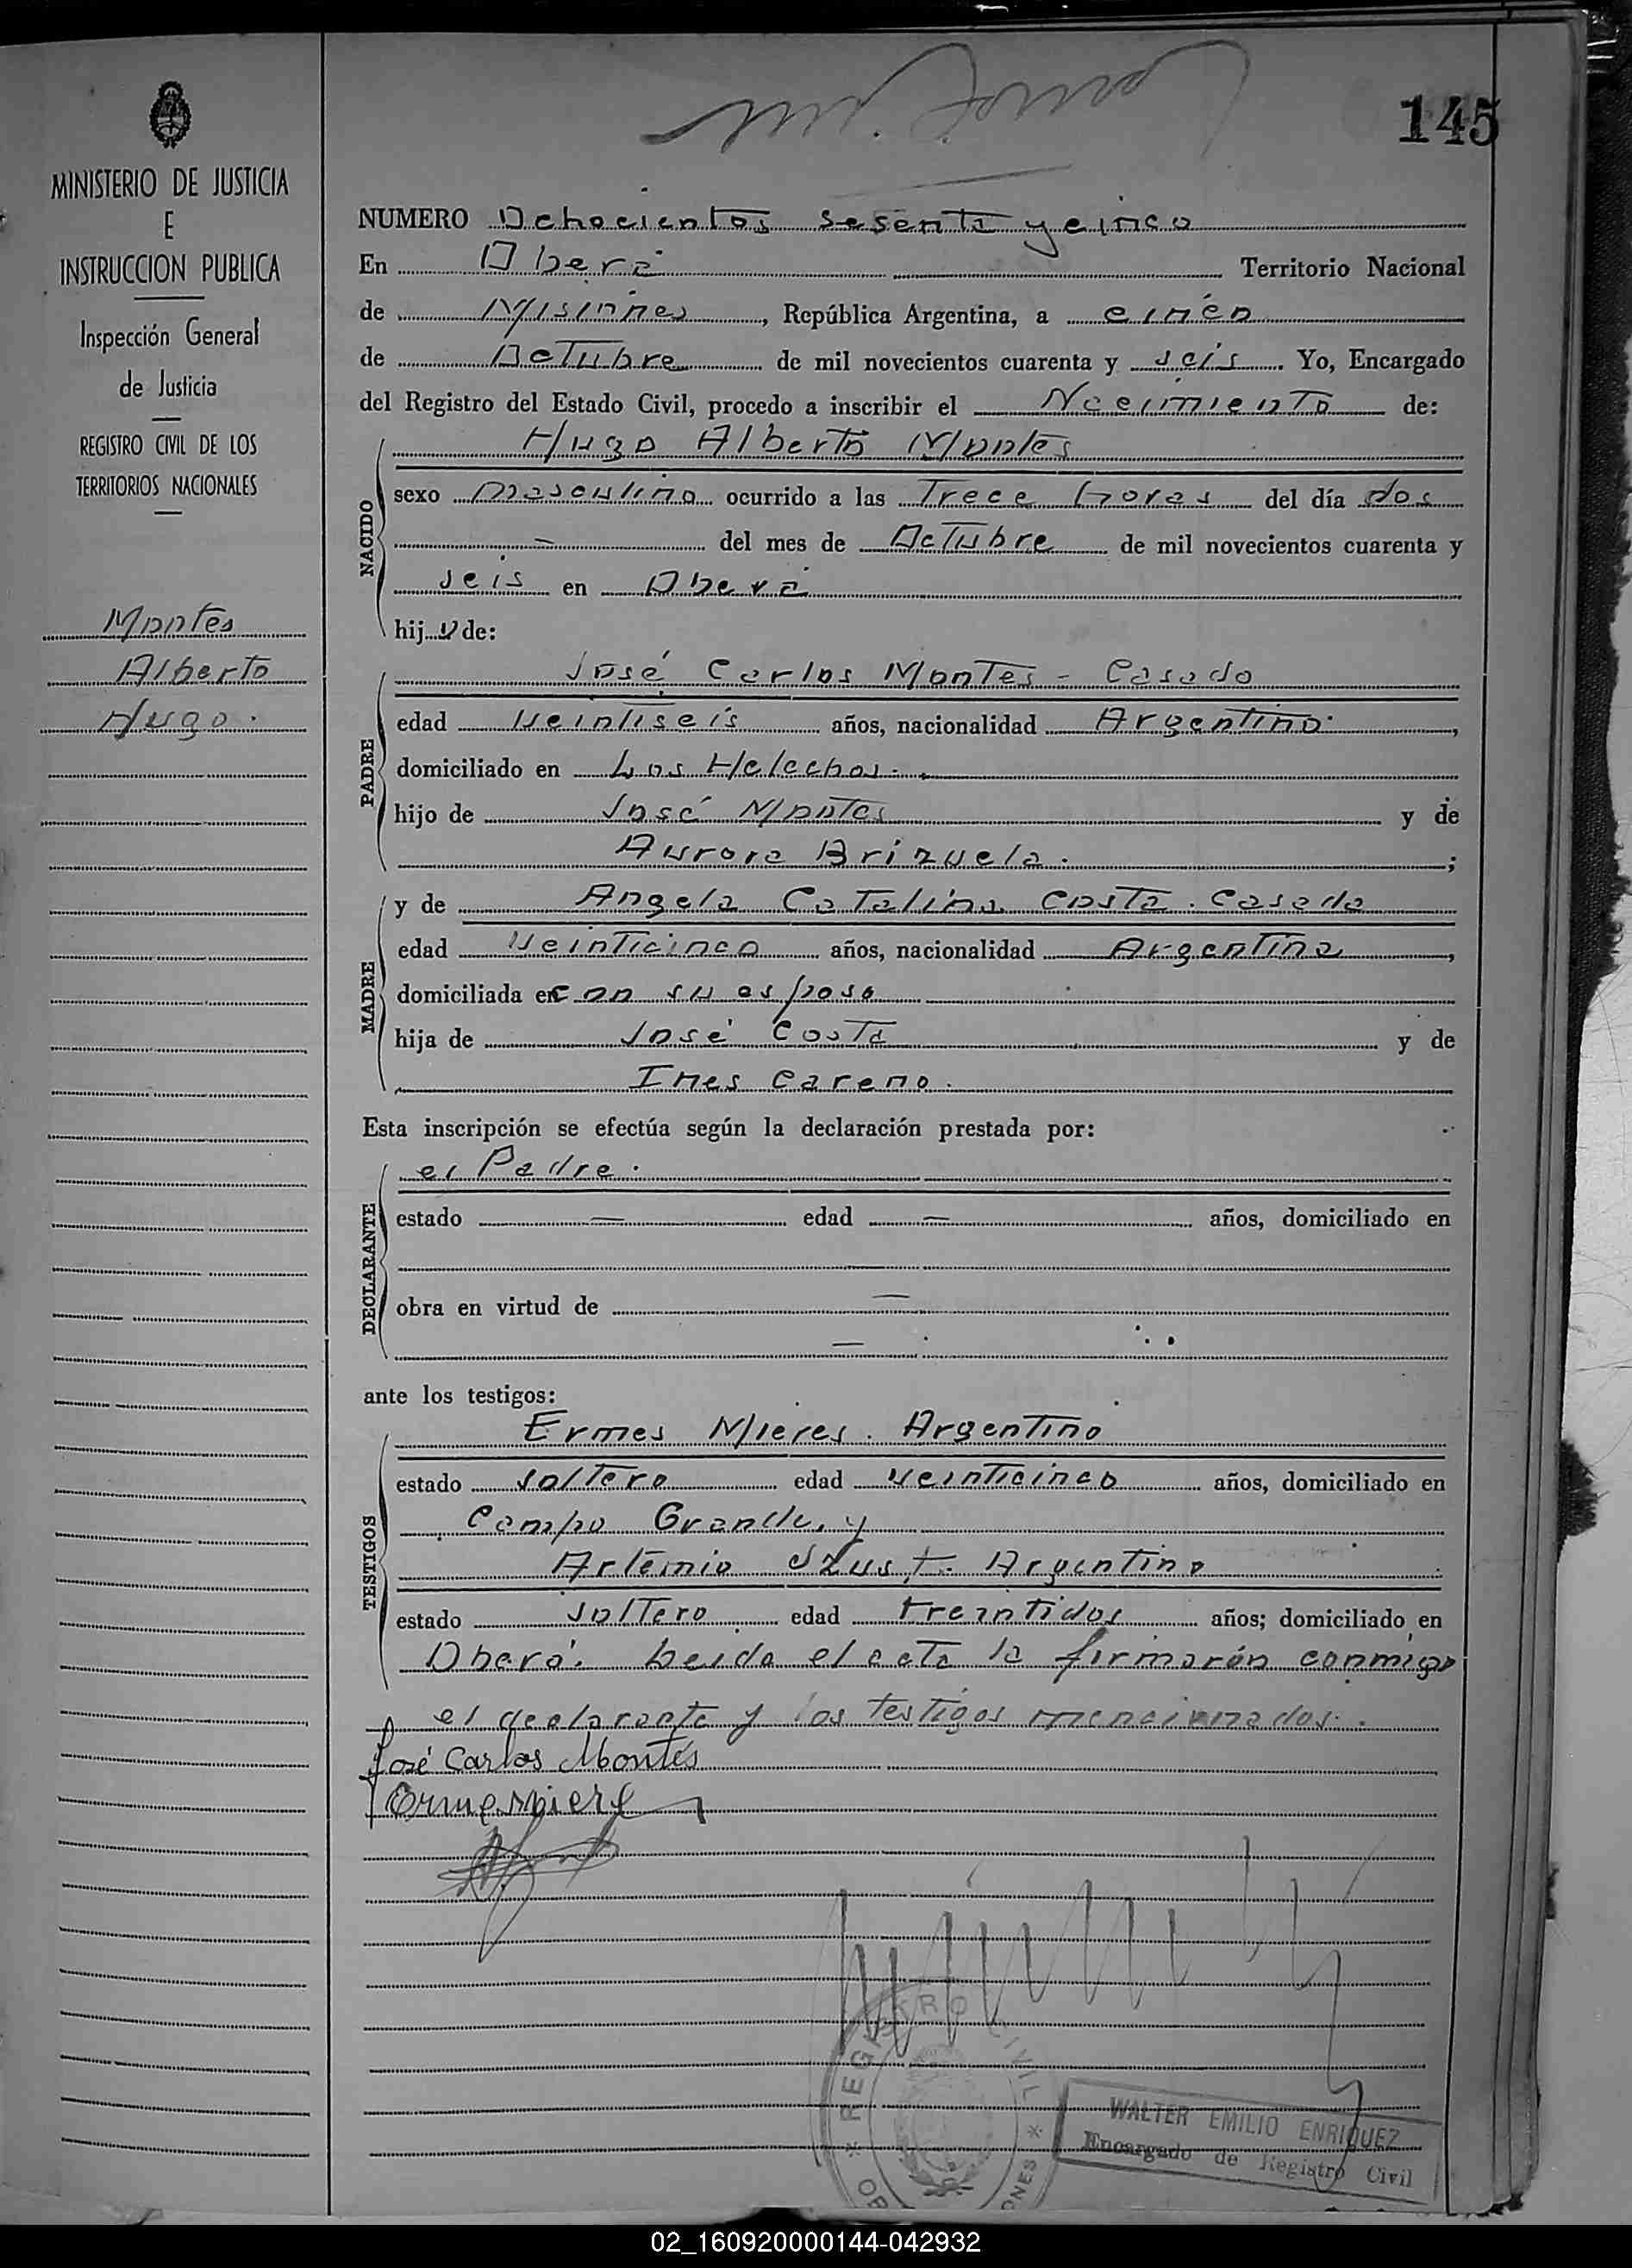 145
MINISTERIO DE JUSTICIA
E
INSTRUCCION PUBLICA
Inspección General
de Justicia
REGISTRO CIVIL DE LOS
TERRITORIOS NACIONALES
Montes
Alberto
Hugo.
NUMERO Ochocientos sesenta y cinco
En Oberá Territorio Nacional
de Misiones, República Argentina, a cinco
de Octubre de mil novecientos cuarenta y seis. Yo, Encargado
del Registro del Estado Civil, procedo a inscribir el Nacimiento de:
NACIDO
Hugo Alberto Montes
sexo masculino ocurrido a las Trece horas del día dos
— del mes de Octubre de mil novecientos cuarenta y
seis en Oberá
hijo de:
PADRE
José Carlos Montes - Casado
edad Veintiseis años, nacionalidad Argentino.,
domiciliado en Los Helechos.
hijo de José Montes y de
Aurora Brizuela. ;
MADRE
y de Angela Catalina Costa. Casada
edad Veinticinco años, nacionalidad Argentina,
domiciliada en con su esposo
hija de José Costa y de
Ines Careno.
Esta inscripción se efectúa según la declaración prestada por:
DECLARANTE
el Padre.
estado — edad — años, domiciliado en
—
obra en virtud de —
—
ante los testigos:
TESTIGOS
Ermes Mieres. Argentino
estado soltero edad veinticinco años, domiciliado en
Campo Grande, y
Artemio Szust. Argentino
estado soltero edad treintidos años; domiciliado en
Oberá. Leida el acta la firmarón conmigo
el declarante y los testigos mencionados.
José Carlos Montes
REGISTRO CIVIL
WALTER EMILIO ENRIQUEZ
Encargado de Registro Civil
02_160920000144-042932